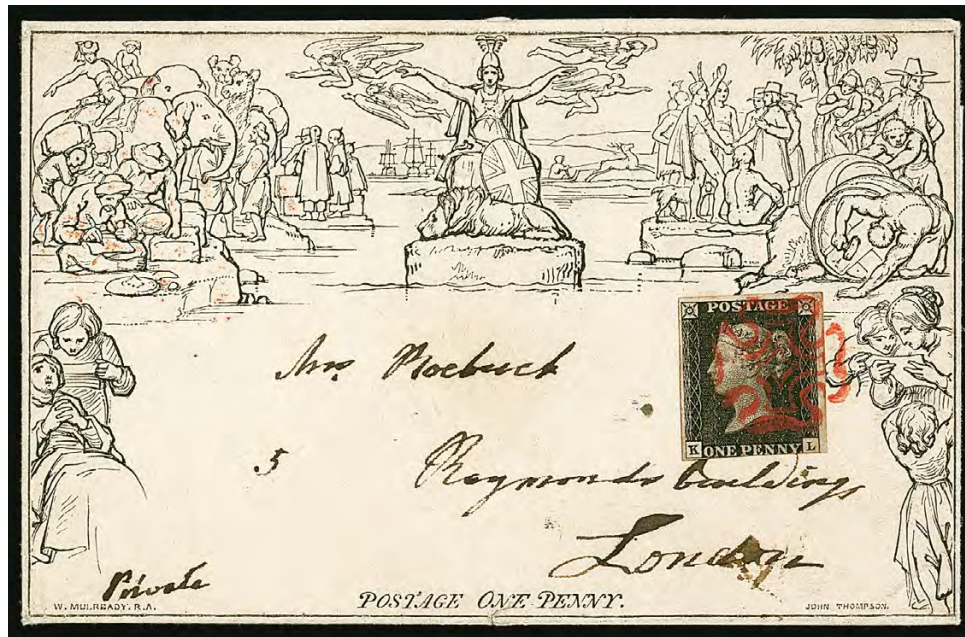 POSTAGE
K ONE PENNY L
Mrs Roebuck
5 Raymonds buildings
London
Private
W. MULREADY. R.A.
POSTAGE ONE PENNY.
JOHN THOMPSON.